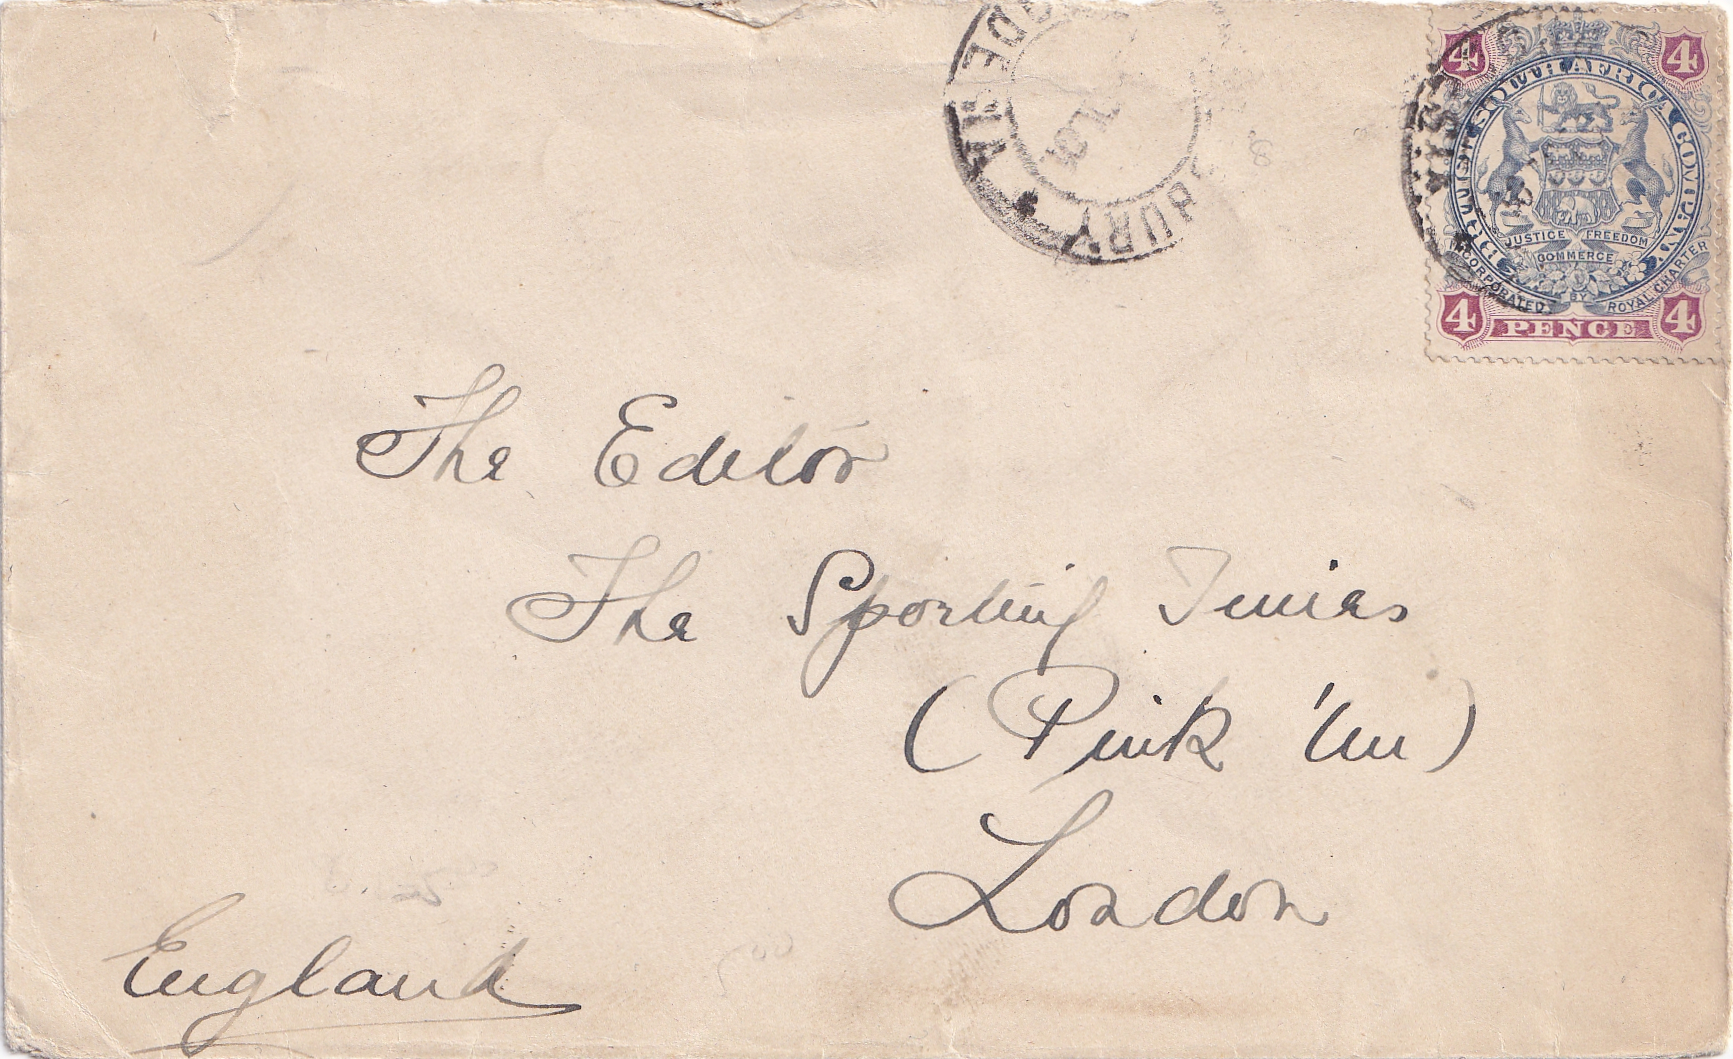 4 4
BRITISH SOUTH AFRICA COMPANY
JUSTICE FREEDOM
COMMERCE
INCORPORATED BY ROYAL CHARTER
4 PENCE 4
The Editor
The Sporting Times
(Pink 'Un)
London
England